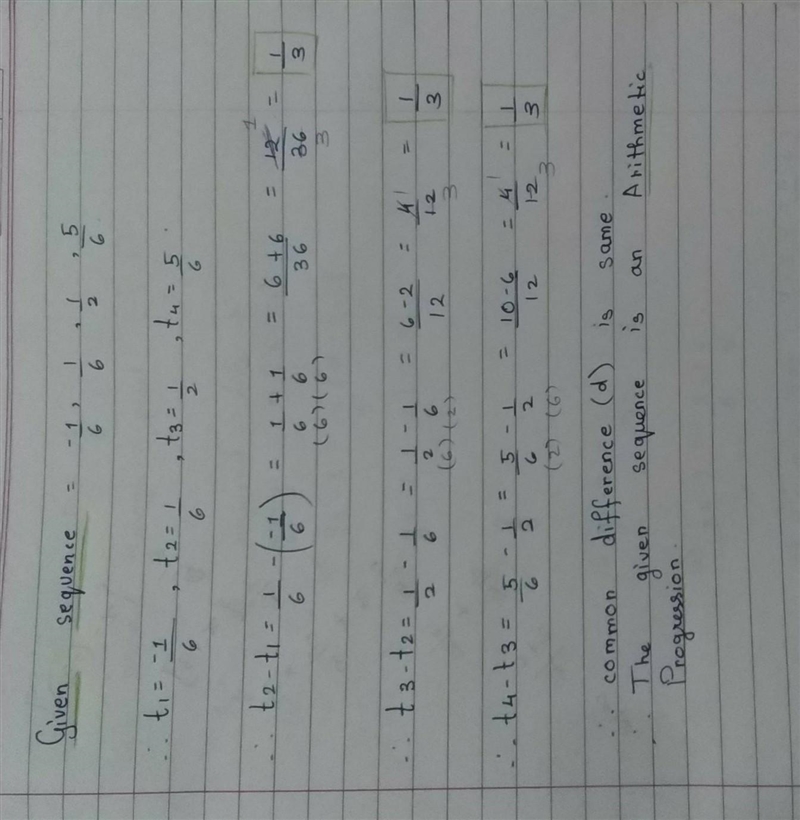 Given sequence = -1/6, 1/6, 1/2, 5/6.
∴ t1 = -1/6, t2 = 1/6, t3 = 1/2, t4 = 5/6.
∴ t2 - t1 = 1/6 - (-1/6) = 1/6 + 1/6 = 6+6/36 = 12/36 = 1/3
(6) (6) 1 3
∴ t3 - t2 = 1/2 - 1/6 = 1/2 - 1/6 = 6-2/12 = 4/12 = 1/3
(6) (2) 1 3
∴ t4 - t3 = 5/6 - 1/2 = 5/6 - 1/2 = 10-6/12 = 4/12 = 1/3
(2) (6) 1 3
∴ common difference (d) is same.
∴ The given sequence is an Arithmetic
Progression.